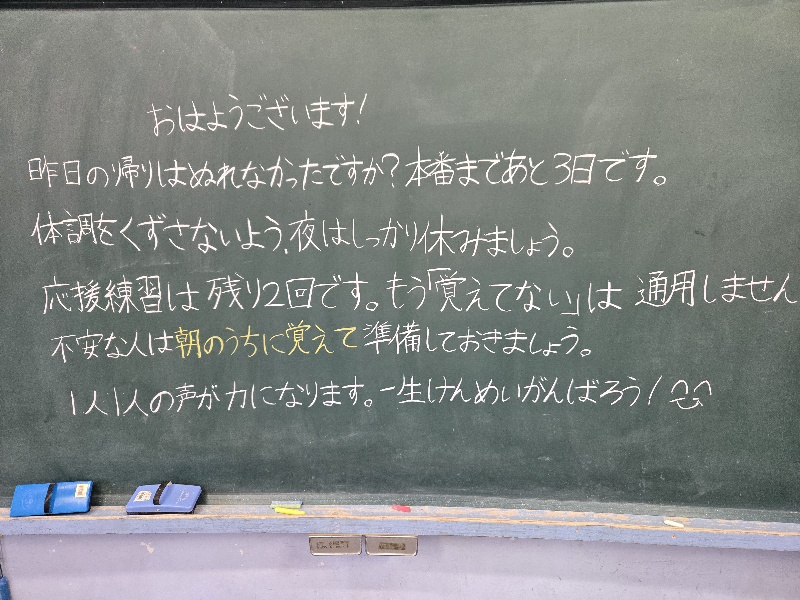 おはようございます!
昨日の帰りはぬれなかったですか?本番まであと3日です。
体調をくずさないよう、夜はしっかり休みましょう。
応援練習は残り2回です。もう「覚えてない」は通用しません
不安な人は朝のうちに覚えて準備しておきましょう。
1人1人の声が力になります。一生けんめいがんばろう!